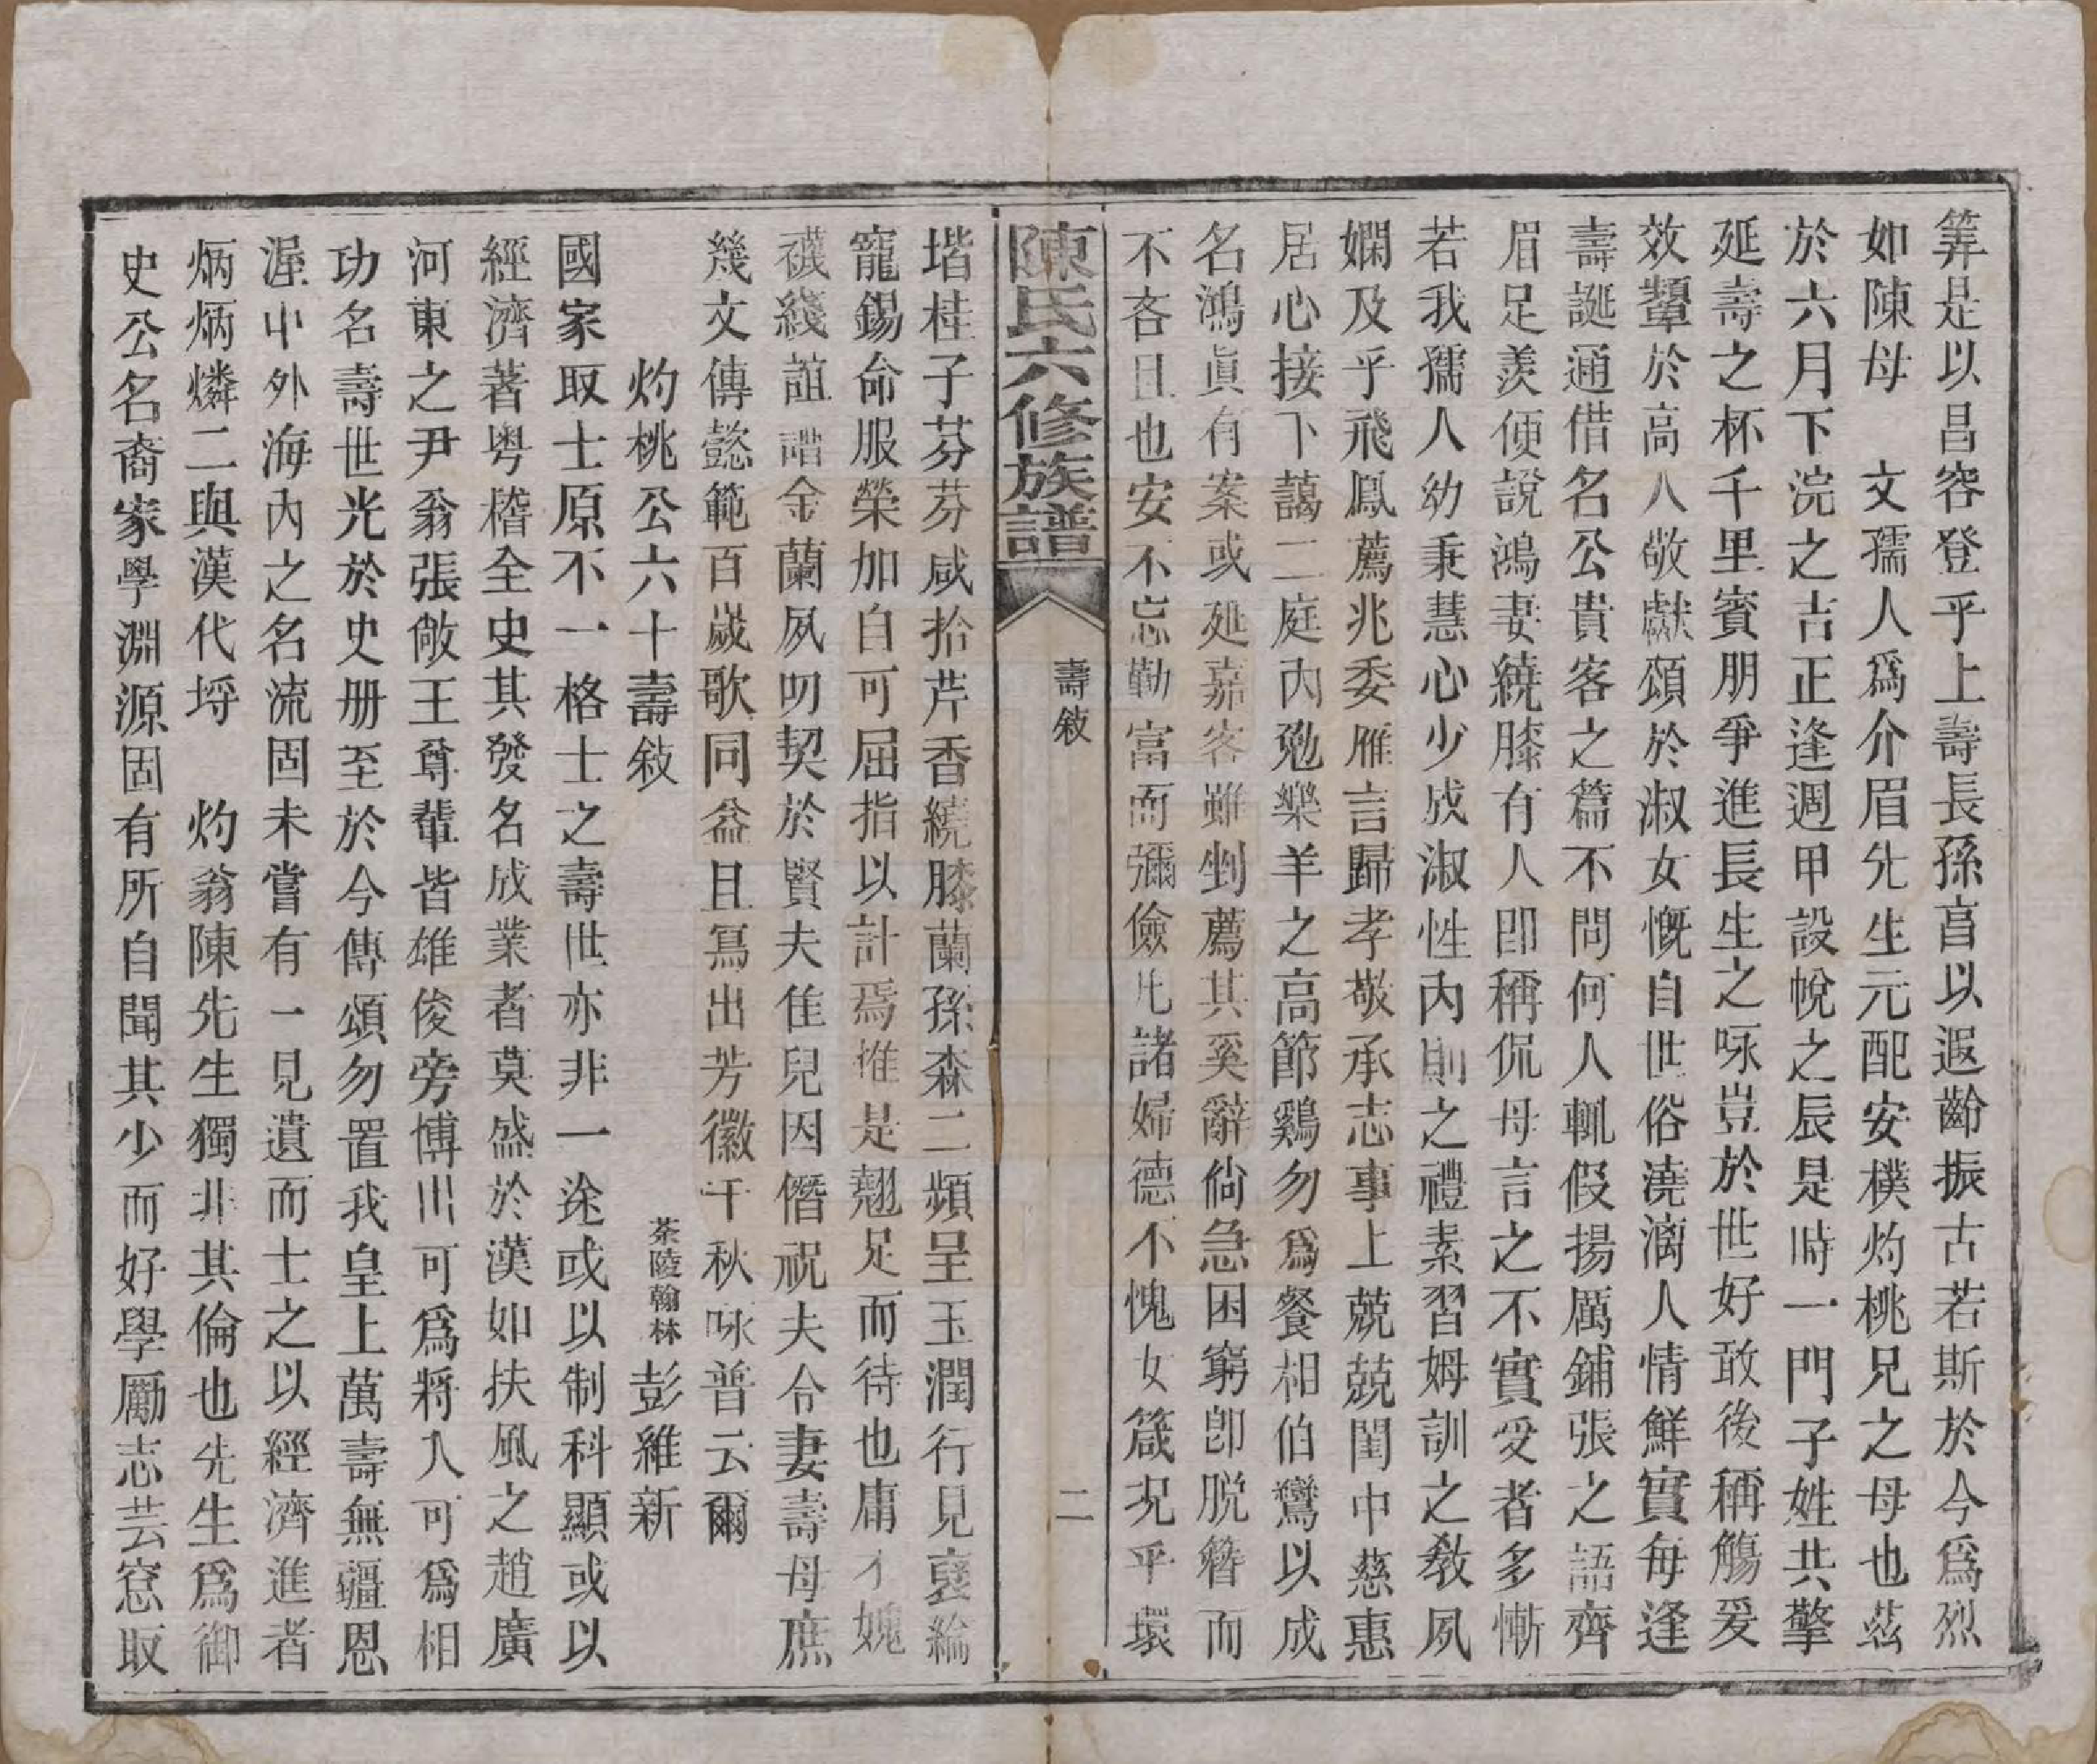 筭是以昌容登乎上壽長孫亯以遐齡振古若斯於今爲烈
如陳母　文孺人爲介眉先生元配安樸灼桃兄之母也茲
於六月下浣之吉正逢週甲設帨之辰是時一門子姓共擎
延壽之杯千里賓朋爭進長生之咏豈於世好敢後稱觴爰
效顰於高人敬獻頌於淑女慨自世俗澆漓人情鮮實每逢
壽誕通借名公貴客之篇不問何人輒假揚厲鋪張之語齊
眉足羡便說鴻妻繞膝有人卽稱侃母言之不實受者多慚
若我孺人幼秉慧心少成淑性內則之禮素習姆訓之教夙
嫻及乎飛鳳薦兆委雁言歸孝敬承志事上兢兢閨中慈惠
居心接下藹藹二庭內勉樂羊之高節鷄勿爲餐相伯鸞以成
名鴻眞有案或延嘉客雖剉薦其奚辭倘急困窮卽脫簪而
不吝且也安不忘勤富而彌儉凡諸婦德不愧女箴況乎環
陳氏六修族譜
壽敘
二
堦桂子芬芬咸拾芹香繞膝蘭孫森二頻呈玉潤行見褒綸
寵錫命服榮加自可屈指以計焉惟是翹足而待也庸才媿
襪綫誼譜金蘭夙叨契於賢夫佳兒因僭祝夫令妻壽母庶
幾文傳懿範百歲歌同益且寫出芳徽千秋咏普云爾
灼桃公六十壽敘　茶陵翰林彭維新
國家取士原不一格士之壽世亦非一途或以制科顯或以
經濟著粤稽全史其發名成業者莫盛於漢如扶風之趙廣
河東之尹翁張敞王尊輩皆雄俊旁博出可爲將入可爲相
功名壽世光於史册至於今傳頌勿置我皇上萬壽無疆恩
渥中外海內之名流固未嘗有一見遺而士之以經濟進者
炳炳燐二與漢代埒　灼翁陳先生獨非其倫也先生爲御
史公名裔家學淵源固有所自聞其少而好學勵志芸窓取